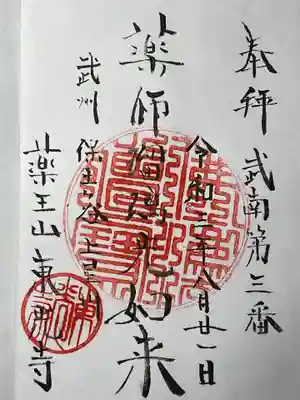 奉拝 武南第三番
令和三年八月廿一日
薬師瑠璃光如来
武州 保土ヶ谷
薬王山 東光寺